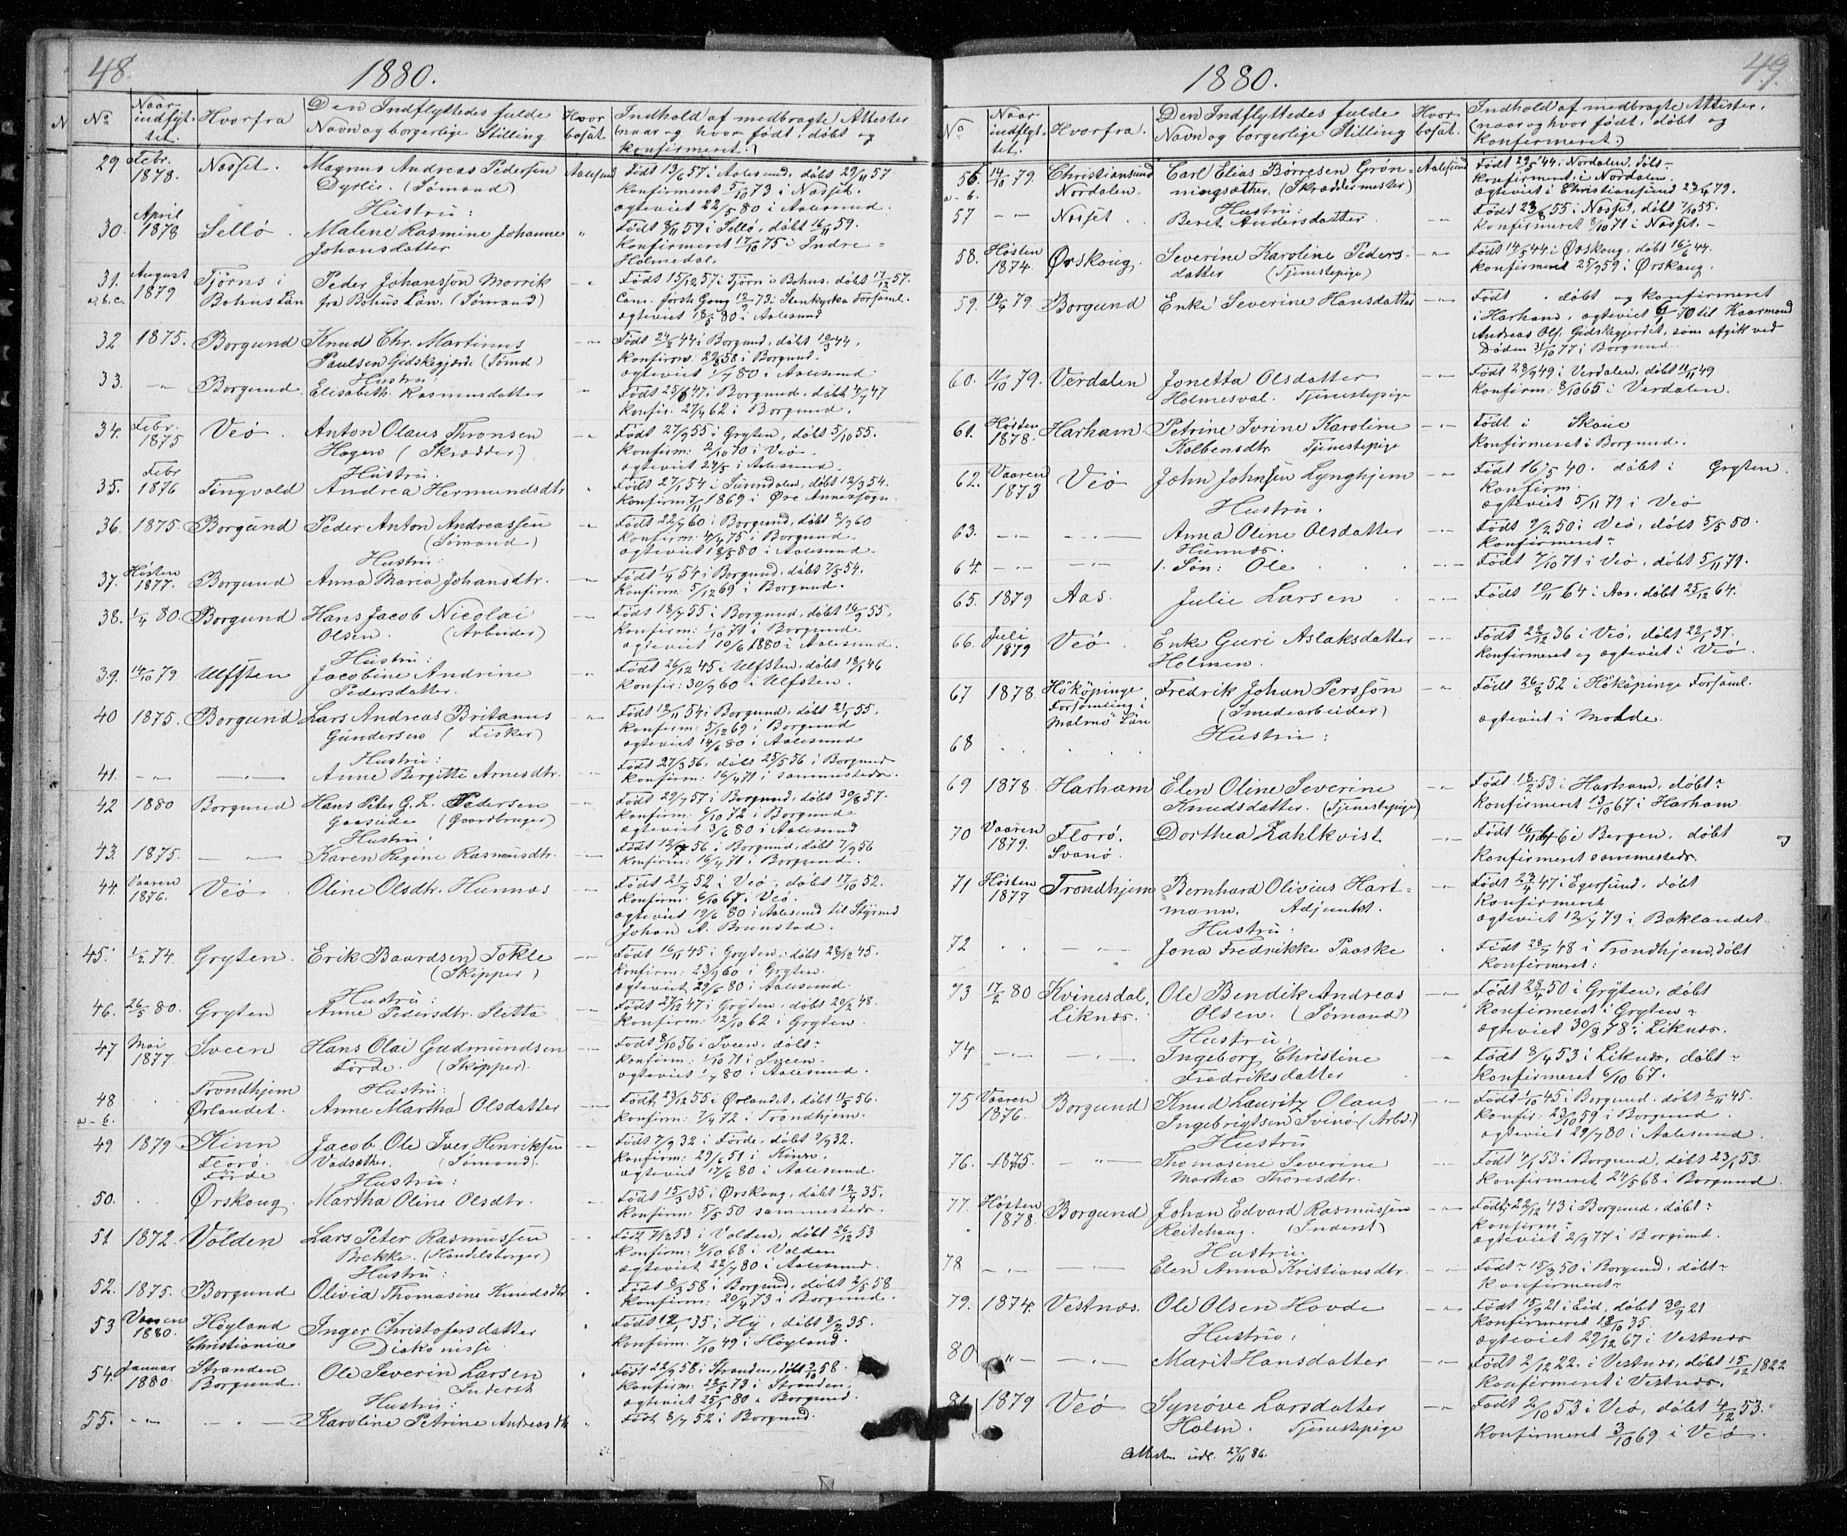 48.
1880.
No
Naar indflyttet.
Hvorfra
Den Indflyttedes fulde Navn og borgerlige Stilling
Hvor bosat.
Indhold af medbragte Attester (naar og hvor født, døbt og konfirmeret.)
29 Febr. 1878. Nosset. Magnus Andreas Pedersen Aalesund Født 13/6 57 i Aalesund, døbt 29/11 57
Dyrlie. (Sømand) Konfirmeret 5/10 73 i Nosset.
Hustru: ægteviet 22/5 80 i Aalesund.
30. April 1878 Sellø. Malene Rasmine Johanne " Født 8/11 59 i Sellø, døbt 16/11 59.
Johansdatter Konfirmeret 17/10 75 i Indre-
Holmedal.
31. a,b,c. August 1879 Tjörns i Bohus Län Peder Johansson Morrik -"- Født 15/12 57 i Tjörn i Bohus. døbt 17/12 57.
fra Bohus Län. (Sømand) Stenkyrka Forsaml.
ægteviet 18/5 80 i Aalesund
32 1875. Borgund Knud Chr. Martinus -"- Født 24/2 44 i Borgund, døbt 10/3 44,
Paulsen Gidskegjerde (Sømd) Konfirm: 29/8 58 i Borgund.
Hustru. ægteviet 1/7 80 i Aalesund
33. -"- Borgund. Elisabeth Rasmusdatter -"- Født 25/6 47 i Borgund, døbt 4/7 47
Konfir. 27/4 62 i Borgund.
34. Febr. 1875 Veø. Anton Olaus Thronsen -"- Født 27/9 55 i Gryten, døbt 5/10 55.
Hagen (Skrædder) Konfirm: 2/10 70 i Veø.
Hustru: ægteviet 27/5 i Aalesund.
35. Febr 1876 Tingvold Andrea Hermundsdtr " Født 27/1 54 i Surendalen, døbt 12/3 54.
Konfirm 7/11 1869 i Øre Annexsogn.
36. 1875. Borgund Peder Anton Andreassen -"- Født 22/7 60 i Borgund, døbt 2/9 60
(Sømand) Konfirm: 4/4 75 i Borgund.
Hustru: ægteviet 18/5 80 i Aalesund.
37. Høsten 1877. Borgund Anna Maria Johansdtr. -"- Født 1/4 54 i Borgund, døbt 7/5 54.
Konfirm: 5/12 69 i Borgund.
38. 1/4 80. Borgund Hans Jacob Nicolai Født 18/7 55 i Borgund, døbt 16/9 55.
Olsen. (Arbeider) Konfirm: 1/10 71 i Borgund
Hustru: ægteviet 10/6 1880 i Aalesund.
39. 14/10 79 Ulfsten Jacobine Andrine Født 26/12 45 i Ulfsten, døbt 18/1 46
Pedersdatter. Konfir: 30/9 60 i Ulfsten.
40 1875. Borgund Lars Andreas Britanus -"- Født 12/11 54 i Borgund, døbt 21/1 55.
Gundersen (Fisker) Konfirm: 5/12 69 i Borgund
Hustru: ægteviet 14/6 80 i Aalesund
41. -"- -"- Anne Birgitte Arnesdtr. Født 27/3 56, døbt 25/5 56 i Borgund
Konfirm: 16/4 71 i sammesteds.
42 1880 Borgund Hans Peter G. L. Pedersen -"- Født 29/4 57 i Borgund, døbt 30/8 57.
Gaaseide (Gaardbruger) Konfirm: 6/10 72 i Borgund
Hustru: ægteviet 3/6 80 i Aalesund
43. 1875. -"- Karen Regine Rasmusdtr. -"- Født 12/7 56 i Borgund, døbt 7/9 56
Konfirm: 16/4 71 i Borgund.
44 Vaaren 1876. Veø Oline Olsdtr. Hunnæs -"- Født 21/7 52 i Veø, døbt 17/10 52.
Konfirm: 6/10 67 i Veø.
ægteviet 19/6 80 i Aalesund til Styrmd
Johan A. Brunstad.
45. 1/2 74. Gryten. Erik Baardsen Tokle -"- Født 16/11 45 i Gryten, døbt 28/12 45.
(Skipper) Konfirm: 23/9 60 i Gryten.
Hustru: ægteviet 29/6 80 i Aalesund.
46. 26/5 80. Gryten Anne Pedersdtr. Sletta -"- Født 27/12 47 i Gryten, døbt 20/2 48.
Konfirm: 12/10 62 i Gryten.
47 Mai 1877. Sveen Hans Olai Gudmundsen -"- Født 8/10 56 i Sveen, døbt "
Førde. (Skipper) Konfirm: 1/10 71 i Sveen.
Hustru: ægteviet 1/7 80 i Aalesund.
48 a-b. Trondhjem Ørlandet. Anne Martha Olsdatter -"- Født 29/12 55 i Ørlandet, døbt 11/5 56.
Konfirm: 1/4 72 i Trondhjem.
49 1879 Kinn Florø. Førde Jacob Ole Iver Henriksen Født 7/9 32 i Førde, døbt 9/9 32.
Vadsæther. (Sømand) Konfirm: 29/6 51 i Kinn.
Hustru: ægteviet 17/6 80 i Aalesund
50. Ørskoug Martha Oline Olsdtr. -"- Født 15/3 35 i Ørskoug, døbt 12/4 35.
Konfirm: 5/5 50 sammesteds.
51 1872. Volden Lars Peter Rasmussen -"- Født 7/12 53 i Volden, døbt 26/12 53
Brekke. (Handelsborger) Konfirm: 4/10 68 i Volden
Hustru: ægteviet 22/7 80 i Aalesund.
52. 1875. Borgund Olivia Thomasine Knudsdtr " Født 8/3 58 i Borgund, døbt 2/5 58
Konfirm: 20/4 73 i Borgund.
53 Vaaren 1880. Høyland Christiania Inger Christofersdatter " Født 12/1 35 i Høy, døbt 8/2 35.
Diakonisse Konfirm. 7/10 49 i Høyland.
54. Januar 1880. Stranden Borgund. Ole Severin Larsen " Født 22/9 58 i Stranden, døbt 3/10 58.
Inderst Konfirm: 28/9 73 i Stranden.
Hustru: ægteviet 25/1 80 i Borgund
55. -"- -"- Karoline Petrine Andreasdtr " Født 8/7 52 i Borgund.
49.
1880.
No
Naar indflyttet.
Hvorfra.
Den Indflyttedes fulde Navn og borgerlige Stilling
Hvor bosat.
Indhold af medbragte Attester. (naar og hvor født, døbt og konfirmeret.)
56. a-b. 14/10 79. Christiansund Nordalen. Carl Elias Børresen Grøn- Aalesund Født 29/5 44 i Nordalen, døbt -
ningsæther. (Skræddermester) Konfirmeret i Nordalen.
Hustru: ægteviet i Christiansund 23/4 79.
57 -"- Nosset. Beret Andersdatter -"- Født 23/8 55 i Nosset, døbt 7/10 55.
Konfirmeret 8/10 71 i Nosset.
58. Høsten 1874. Ørskoug. Severine Karoline Peders- -"- Født 14/5 44 i Ørskoug, døbt 16/6 44.
datter (Tjenestepige) Konfirmeret 25/9 59 i Ørskoug.
59. 14/4 79. Borgund Enke Severine Hansdatter -"- Født . døbt og konfirmeret
i Harham, ægteviet 9/1 70 til Kaarmand
Andreas Ols. Gidskegjerdet, som afgik ved
Døden 31/10 77 i Borgund.
60. 11/10 79. Verdalen Jonetta Olsdatter -"- Født 23/9 49 i Verdalen, døbt 11/11 49
Holmesval. Tjenestepige Konfirm: 8/10 65 i Verdalen.
61. Høsten 1878. Harham Petrine Ivrine Karoline -"- Født i Skoue
Kolbensdtr. Tjenestepige Konfirmeret i Borgund.
62. Vaaren 1873 Veø John Johnsen Lynghjem -"- Født 16/5 40. døbt i Gryten.
Konfirm.
Hustru. ægteviet 5/11 71 i Veø
63. -"- -"- Anna Oline Olsdatter -"- Født 9/2 50 i Veø, døbt 5/5 50.
Hunnæs. Konfirmeret "
64. -"- -"- 1. Søn: Ole . -"- Født 7/10 71 i Veø, døbt 5/11 71.
65. 1879 Aas. Julie Larsen -"- Født 10/11 64 i Aas, døbt 25/12 64.
66. Juli 1879 Veø Enke Guri Aslaksdatter -"- Født 22/12 36 i Veø, døbt 22/1 37,
Holmen. Konfirmeret og ægteviet i Veø.
67 1878. Hököpinge Forsamling i Malmö Län Fredrik Johan Persson -"- Født 26/8 52 i Hököpinge Forsaml.
(Smedearbeider) ægteviet i Molde.
68 . Hustru:
69 1878. Harham Elen Oline Severine -"- Født 18/2 53 i Harham, døbt "
Knudsdatter. (Tjenestepige) Konfirmeret 13/10 67 i Harham
70 Vaaren 1879. Florø. Svanø. Dorthea Zahlkvist -"- Født 16/11 46 i Bergen, døbt og
Konfirmeret sammesteds.
71 Høsten 1877 Trondhjem Bernhard Olivius Hart- -"- Født 23/4 47 i Egersund, døbt
mann. Adjunkt. Konfirmeret
Hustru: ægteviet 12/7 79 i Baklandet.
72 . -"- Jona Fredrikke Paaske . Født 28/7 48 i Trondhjem, døbt
Konfirmeret:
73 17/2 80 Kvinesdal, Liknæs. Ole Bendik Andreas -"- Født 28/4 50 i Gryten, døbt
Olsen. (Sømand) Konfirmeret i Gryten "
Hustru: ægteviet 30/8 78 i Liknæs.
74 -"- -"- Ingeborg Christine " Født 8/4 53 i Liknæs, døbt "
Fredriksdatter Konfirmeret 6/10 67.
75 Vaaren 1876. Borgund Knud Lauritz Olaus -"- Født 1/10 45 i Borgund, døbt 2/11 45.
Ingebrigtsen Svinø (Arbd.) Konfir. 23/10 59 i Borgund
Hustru ægteviet 29/7 80 i Aalesund.
76. 1875. -"- Thomasine Severine -"- Født 4/1 53 i Borgund, døbt 23/1 53.
Martha Thoresdtr. Konfirmeret 24/5 68 i Borgund.
77. Høsten 1878. Borgund Johan Edvard Rasmussen -"- Født 22/12 43 i Borgund, døbt "
Reitehaug. (Inderst) Konfirm "
Hustru. ægteviet 2/9 77 i Borgund.
78 -"- -"- Elen Anna Kristiansdtr. -"- Født " 15/3 50 i Borgund, døbt "
Konfirmeret "
79. 1874. Vestnæs. Ole Olsen Hovde -"- Født 15/9 21 i Eid, døbt 30/9 21
Konfirmeret 18/10 35.
Hustru: ægteviet 29/12 67 i Vestnæs
80 " -"- Marit Hansdatter -"- Født 2/12 22. i Vestnæs, døbt 15/12 1822
Konfirmeret i Vestnæs.
81. 1879 Veø Synøve Larsdatter -"- Født 2/10 53 i Veø, døbt 4/12 53.
Holm. Tjenestepige Konfirmeret 3/10 69 i Veø.
Attesten udl. 27/11 86.